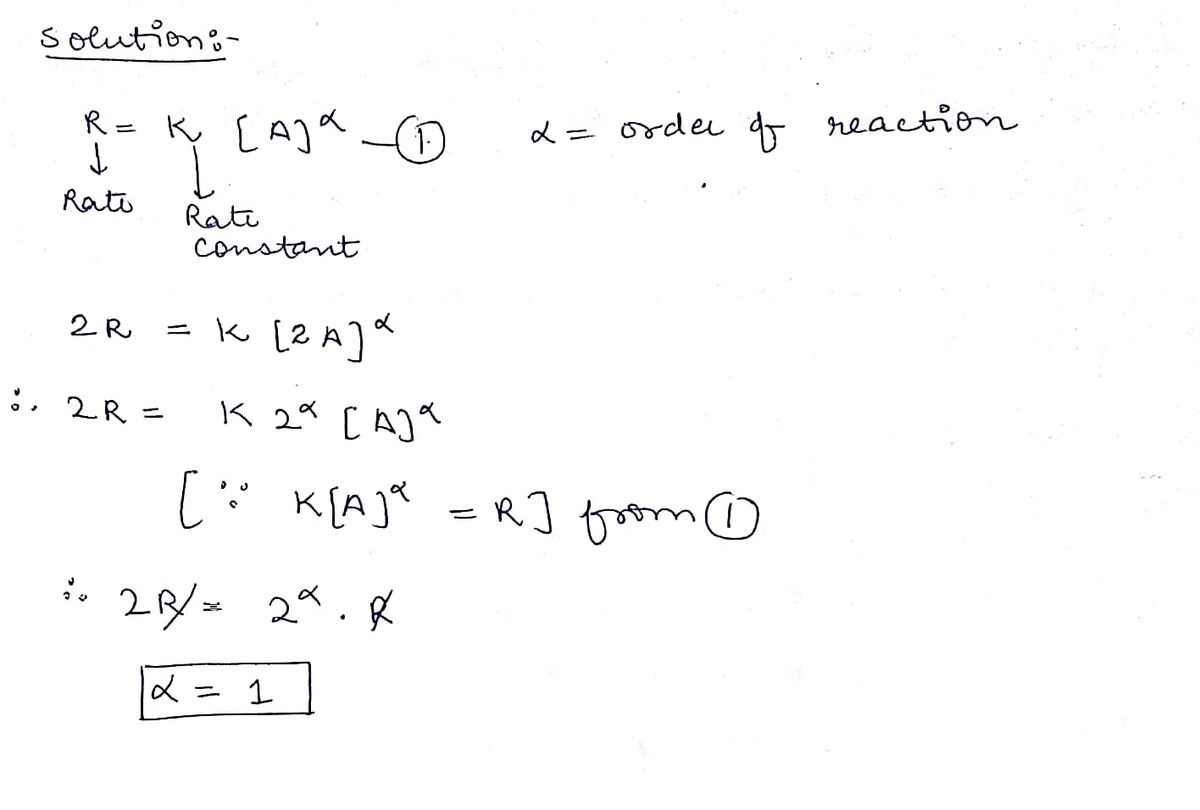 Solution:-
R = K [A]^α —① α = order of reaction
↓ ↓
Rate Rate
constant
2R = K [2A]^α
∴ 2R = K 2^α [A]^α
[∵ K[A]^α = R] from ①
∴ 2R = 2^α . R
α = 1